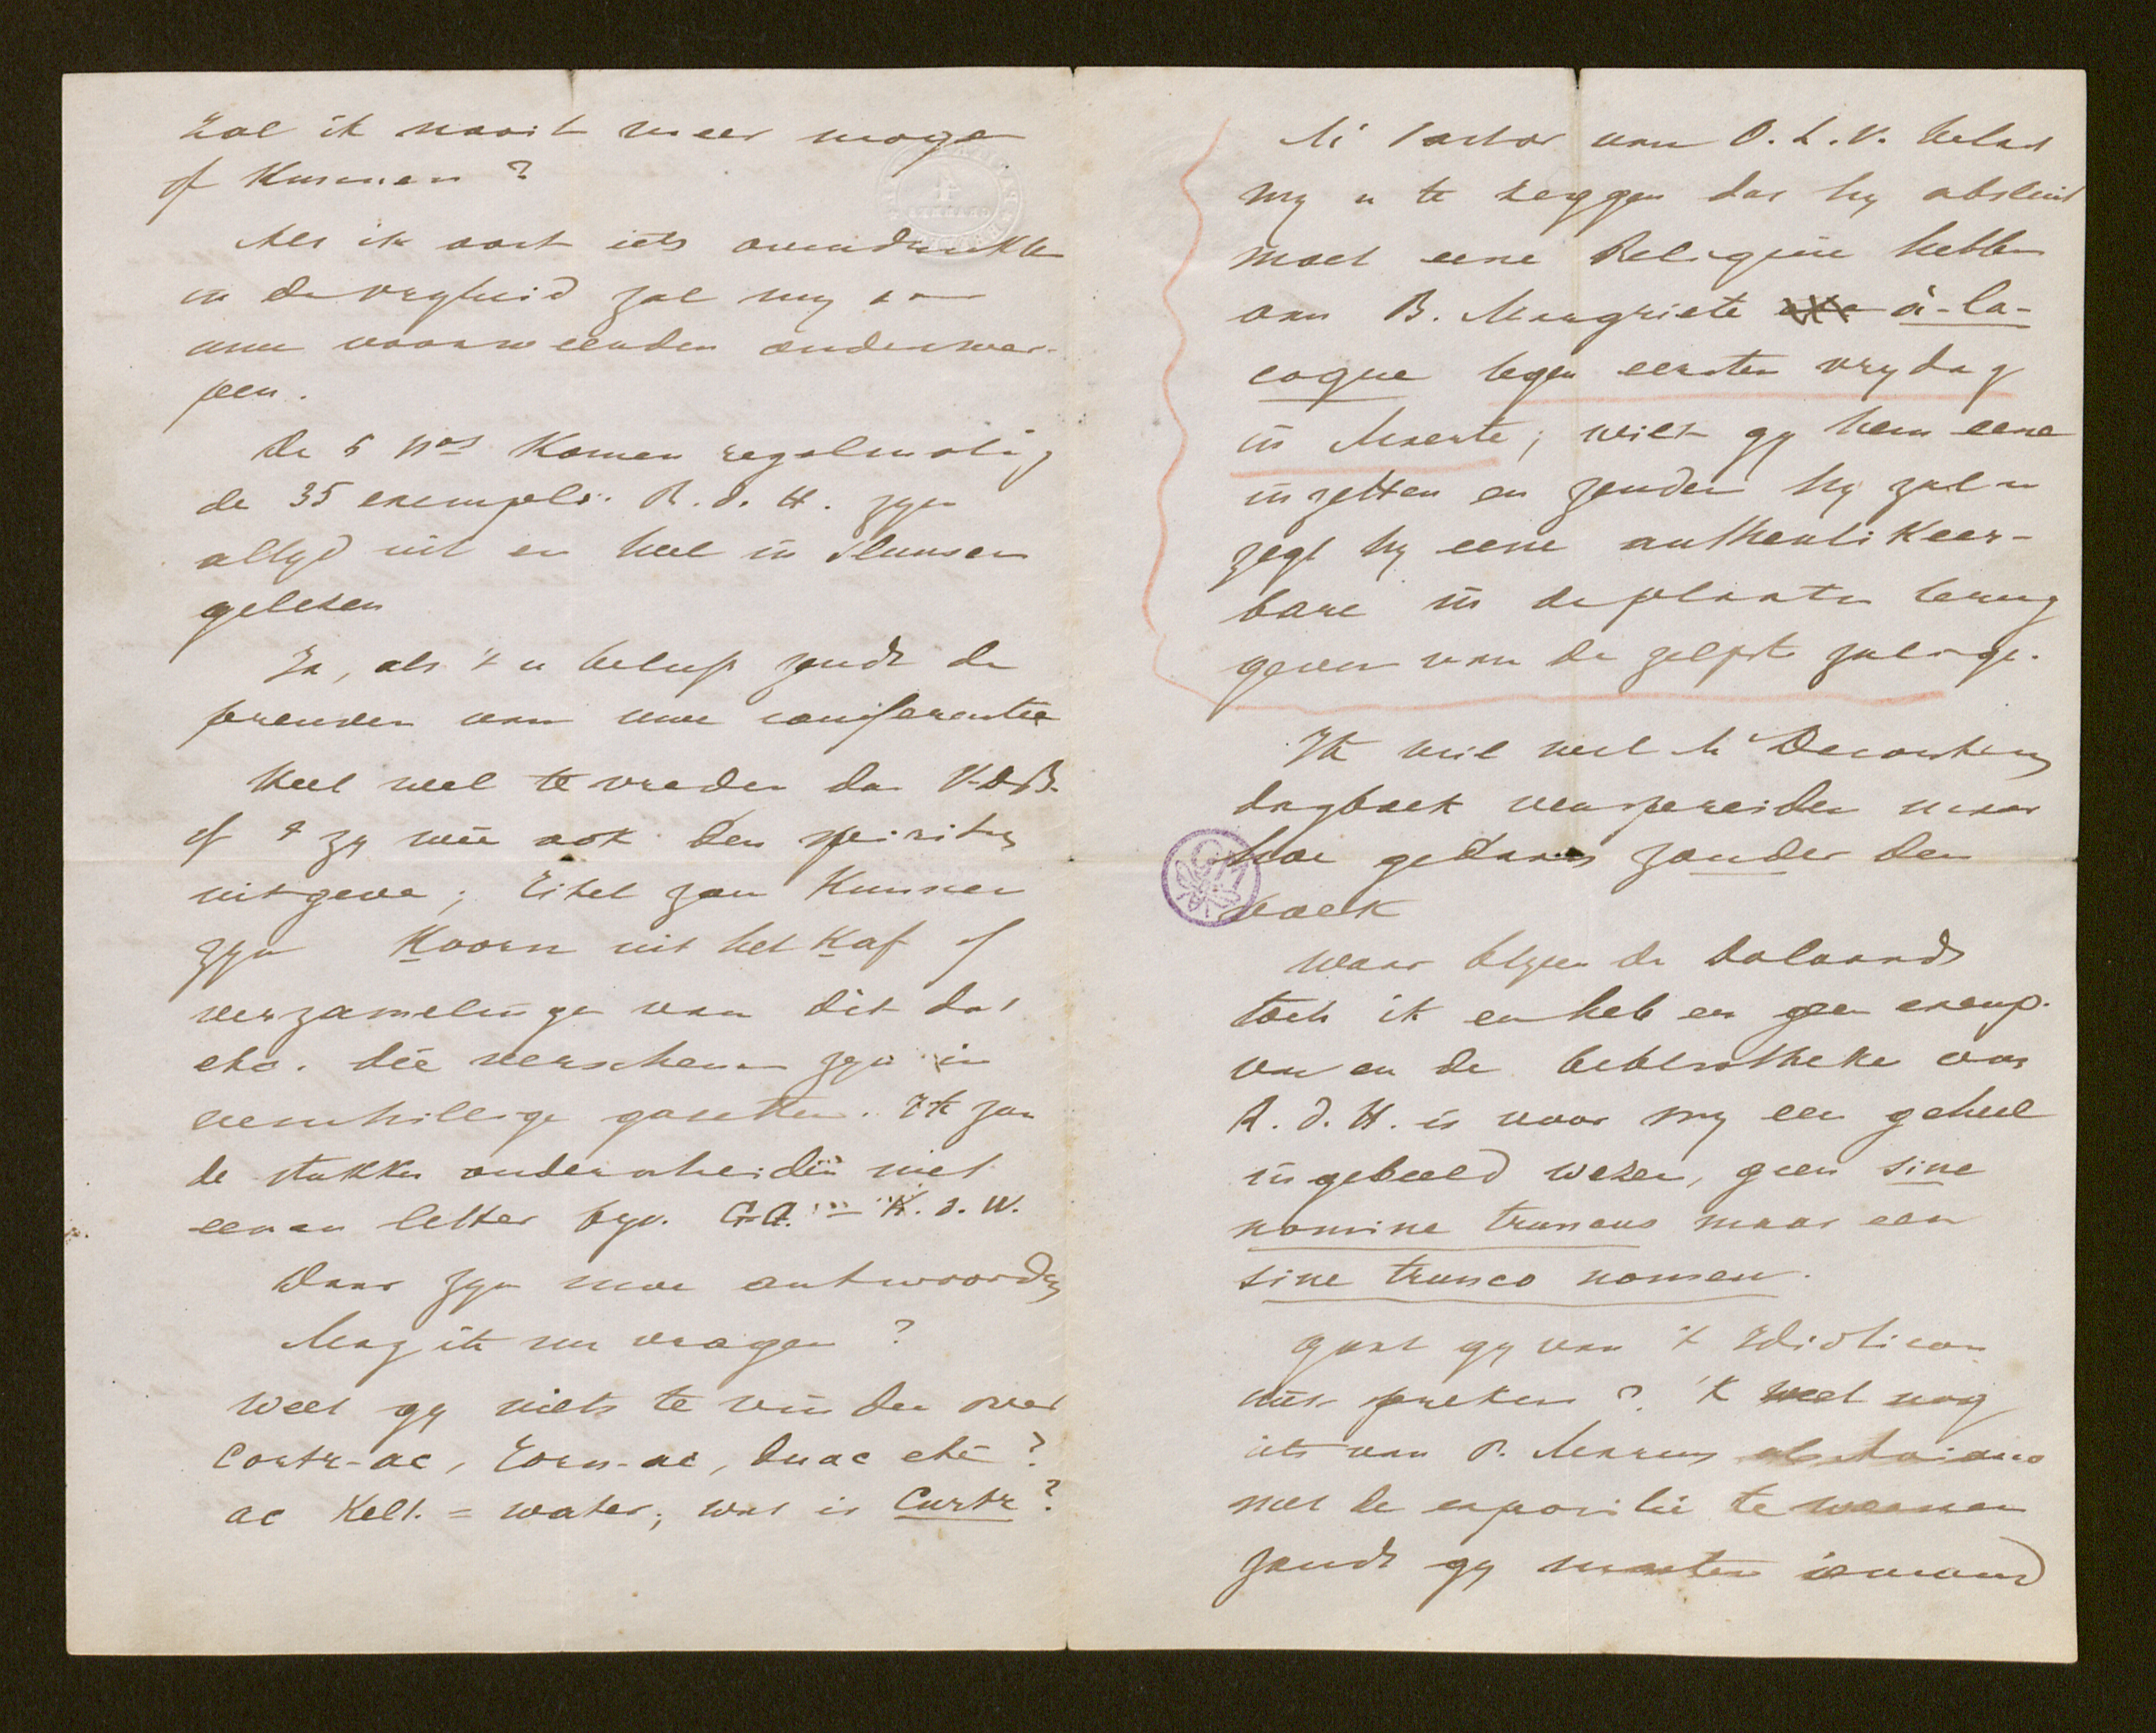 Zal ik nooit meer mogen
of Kunnen?
Als ik ooit iets overdrukke
in de vryheid zal my aan
uwe voorwaarden onderwer-
pen.
De 5 Nos Komen regelmatig
de 35 exempls. R. d. H. zyn
altyd uit en heel in
gelezen
Ja, als 't u belieft zendt de
preuven van uwe conferentie
heel wel te vreden dat V.D.B.
of 't zy wie ook den spiritus
uitgeve; Titel zou Kunnen
zyn Koorn uit het Kaf of
verzamelinge van dit dat
etc. die verschenen zyn in
verschillige gazetten. Ik zou
de stukken onderscheiden met
eenen letter byv. G.G. — K. d. W.
Daar zyn moe antwoorden
Mag ik nu vragen?
Weet gy niets te vinden over
Cortr-ac, Torn-ac, Duac etc?
ac Kelt. = water; wat is Curtr?
M Pastor van O. L. V. belast
my u te zeggen dat hy absluit
moet eene Reliquie hebben
van B. Margriete à-la-
coque tegen eersten vrydag
in Maerte; wilt gy hem eene
inzetten en zenden hy zal u
zegt hy eene authentikeer-
bare in de plaatse terug
geven van de zelfste zalige.
Ik wil wel M
dagboek verspreiden maar
hoe gedaan zonder den
boek
Waar blyven de Dalaards
toch ik en heb er geen exemp.
van en de bebliotheke van
R. d. H. is voor my een geheel
ingebeeld wezen, geen sine
nomine truncus maar een
sine trunco nomen.
Gaat gy van 't Idioticon
niet spreken? 'K weet nog
iets van P.
met de expositie te weenen
zendt gy iemand